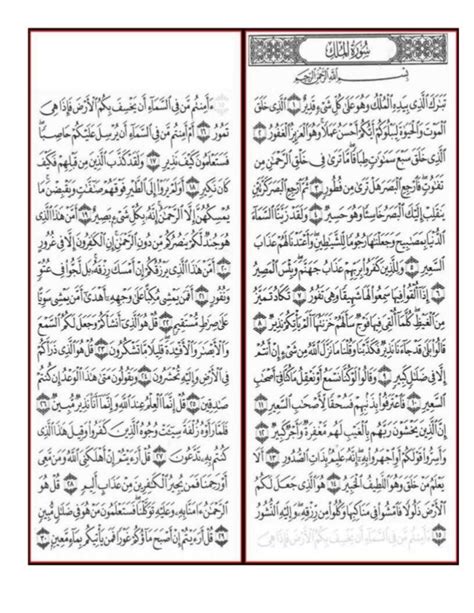 سُورَةُ المُلْكِ
بِسْمِ ٱللَّهِ ٱلرَّحْمَٰنِ ٱلرَّحِيمِ
تَبَٰرَكَ ٱلَّذِى بِيَدِهِ ٱلْمُلْكُ وَهُوَ عَلَىٰ كُلِّ شَىْءٍ قَدِيرٌ ١ ٱلَّذِى خَلَقَ
ٱلْمَوْتَ وَٱلْحَيَوٰةَ لِيَبْلُوَكُمْ أَيُّكُمْ أَحْسَنُ عَمَلًا وَهُوَ ٱلْعَزِيزُ ٱلْغَفُورُ ٢
ٱلَّذِى خَلَقَ سَبْعَ سَمَٰوَٰتٍ طِبَاقًا مَّا تَرَىٰ فِى خَلْقِ ٱلرَّحْمَٰنِ مِن
تَفَٰوُتٍ فَٱرْجِعِ ٱلْبَصَرَ هَلْ تَرَىٰ مِن فُطُورٍ ٣ ثُمَّ ٱرْجِعِ ٱلْبَصَرَ كَرَّتَيْنِ
يَنقَلِبْ إِلَيْكَ ٱلْبَصَرُ خَاسِئًا وَهُوَ حَسِيرٌ ٤ وَلَقَدْ زَيَّنَّا ٱلسَّمَآءَ
ٱلدُّنْيَا بِمَصَٰبِيحَ وَجَعَلْنَٰهَا رُجُومًا لِّلشَّيَٰطِينِ وَأَعْتَدْنَا لَهُمْ عَذَابَ
ٱلسَّعِيرِ ٥ وَلِلَّذِينَ كَفَرُوا۟ بِرَبِّهِمْ عَذَابُ جَهَنَّمَ وَبِئْسَ ٱلْمَصِيرُ
٦ إِذَآ أُلْقُوا۟ فِيهَا سَمِعُوا۟ لَهَا شَهِيقًا وَهِىَ تَفُورُ ٧ تَكَادُ تَمَيَّزُ
مِنَ ٱلْغَيْظِ كُلَّمَآ أُلْقِىَ فِيهَا فَوْجٌ سَأَلَهُمْ خَزَنَتُهَآ أَلَمْ يَأْتِكُمْ نَذِيرٌ ٨
قَالُوا۟ بَلَىٰ قَدْ جَآءَنَا نَذِيرٌ فَكَذَّبْنَا وَقُلْنَا مَا نَزَّلَ ٱللَّهُ مِن شَىْءٍ إِنْ أَنتُمْ
إِلَّا فِى ضَلَٰلٍ كَبِيرٍ ٩ وَقَالُوا۟ لَوْ كُنَّا نَسْمَعُ أَوْ نَعْقِلُ مَا كُنَّا فِىٓ أَصْحَٰبِ
ٱلسَّعِيرِ ١٠ فَٱعْتَرَفُوا۟ بِذَنۢبِهِمْ فَسُحْقًا لِّأَصْحَٰبِ ٱلسَّعِيرِ ١١
إِنَّ ٱلَّذِينَ يَخْشَوْنَ رَبَّهُم بِٱلْغَيْبِ لَهُم مَّغْفِرَةٌ وَأَجْرٌ كَبِيرٌ ١٢
وَأَسِرُّوا۟ قَوْلَكُمْ أَوِ ٱجْهَرُوا۟ بِهِۦٓ إِنَّهُۥ عَلِيمٌۢ بِذَاتِ ٱلصُّدُورِ ١٣ أَلَا
يَعْلَمُ مَنْ خَلَقَ وَهُوَ ٱللَّطِيفُ ٱلْخَبِيرُ ١٤ هُوَ ٱلَّذِى جَعَلَ لَكُمُ
ٱلْأَرْضَ ذَلُولًا فَٱمْشُوا۟ فِى مَنَاكِبِهَا وَكُلُوا۟ مِن رِّزْقِهِۦ وَإِلَيْهِ ٱلنُّشُورُ
١٥ ءَأَمِنتُم مَّن فِى ٱلسَّمَآءِ أَن يَخْسِفَ بِكُمُ ٱلْأَرْضَ فَإِذَا هِىَ
ءَأَمِنتُم مَّن فِى ٱلسَّمَآءِ أَن يَخْسِفَ بِكُمُ ٱلْأَرْضَ فَإِذَا هِىَ
تَمُورُ ١٦ أَمْ أَمِنتُم مَّن فِى ٱلسَّمَآءِ أَن يُرْسِلَ عَلَيْكُمْ حَاصِبًا
فَسَتَعْلَمُونَ كَيْفَ نَذِيرِ ١٧ وَلَقَدْ كَذَّبَ ٱلَّذِينَ مِن قَبْلِهِمْ فَكَيْفَ
كَانَ نَكِيرِ ١٨ أَوَلَمْ يَرَوْا۟ إِلَى ٱلطَّيْرِ فَوْقَهُمْ صَٰٓفَّٰتٍ وَيَقْبِضْنَ مَا
يُمْسِكُهُنَّ إِلَّا ٱلرَّحْمَٰنُ إِنَّهُۥ بِكُلِّ شَىْءٍۭ بَصِيرٌ ١٩ أَمَّنْ هَٰذَا ٱلَّذِى
هُوَ جُندٌ لَّكُمْ يَنصُرُكُم مِّن دُونِ ٱلرَّحْمَٰنِ إِنِ ٱلْكَٰفِرُونَ إِلَّا فِى غُرُورٍ
٢٠ أَمَّنْ هَٰذَا ٱلَّذِى يَرْزُقُكُمْ إِنْ أَمْسَكَ رِزْقَهُۥ بَل لَّجُّوا۟ فِى عُتُوٍّ
وَنُفُورٍ ٢١ أَفَمَن يَمْشِى مُكِبًّا عَلَىٰ وَجْهِهِۦٓ أَهْدَىٰٓ أَمَّن يَمْشِى سَوِيًّا
عَلَىٰ صِرَٰطٍ مُّسْتَقِيمٍ ٢٢ قُلْ هُوَ ٱلَّذِىٓ أَنشَأَكُمْ وَجَعَلَ لَكُمُ ٱلسَّمْعَ
وَٱلْأَبْصَٰرَ وَٱلْأَفْـِٔدَةَ قَلِيلًا مَّا تَشْكُرُونَ ٢٣ قُلْ هُوَ ٱلَّذِى ذَرَأَكُمْ
فِى ٱلْأَرْضِ وَإِلَيْهِ تُحْشَرُونَ ٢٤ وَيَقُولُونَ مَتَىٰ هَٰذَا ٱلْوَعْدُ إِن كُنتُمْ
صَٰدِقِينَ ٢٥ قُلْ إِنَّمَا ٱلْعِلْمُ عِندَ ٱللَّهِ وَإِنَّمَآ أَنَا۠ نَذِيرٌ مُّبِينٌ ٢٦
فَلَمَّا رَأَوْهُ زُلْفَةً سِيٓـَٔتْ وُجُوهُ ٱلَّذِينَ كَفَرُوا۟ وَقِيلَ هَٰذَا ٱلَّذِى
كُنتُم بِهِۦ تَدَّعُونَ ٢٧ قُلْ أَرَءَيْتُمْ إِنْ أَهْلَكَنِىَ ٱللَّهُ وَمَن مَّعِىَ
أَوْ رَحِمَنَا فَمَن يُجِيرُ ٱلْكَٰفِرِينَ مِنْ عَذَابٍ أَلِيمٍ ٢٨ قُلْ هُوَ
ٱلرَّحْمَٰنُ ءَامَنَّا بِهِۦ وَعَلَيْهِ تَوَكَّلْنَا فَسَتَعْلَمُونَ مَنْ هُوَ فِى ضَلَٰلٍ مُّبِينٍ
٢٩ قُلْ أَرَءَيْتُمْ إِنْ أَصْبَحَ مَآؤُكُمْ غَوْرًا فَمَن يَأْتِيكُم بِمَآءٍ مَّعِينٍۭ ٣٠